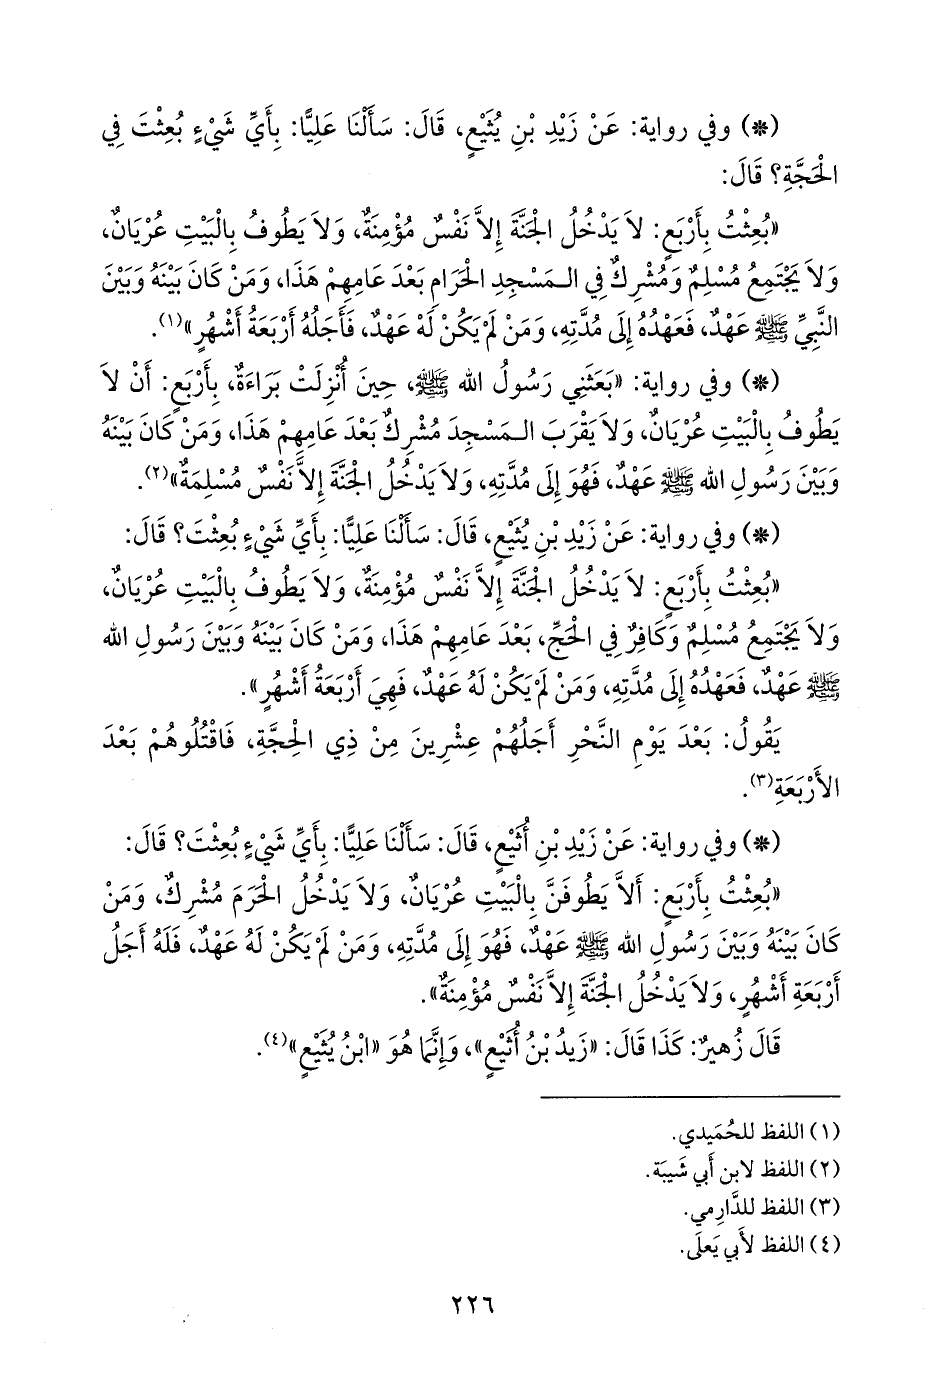 (*) وفي رواية: عَنْ زَيْدِ بْنِ يُثَيْعٍ، قَالَ: سَأَلْنَا عَلِيًّا: بِأَيِّ شَيْءٍ بُعِثْتَ فِي
الْحَجَّةِ؟ قَالَ:
«بُعِثْتُ بِأَرْبَعٍ: لاَ يَدْخُلُ الْجَنَّةَ إِلاَّ نَفْسٌ مُؤْمِنَةٌ، وَلاَ يَطُوفُ بِالْبَيْتِ عُرْيَانٌ،
وَلاَ يَجْتَمِعُ مُسْلِمٌ وَمُشْرِكٌ فِي الـمَسْجِدِ الْحَرَامِ بَعْدَ عَامِهِمْ هَذَا، وَمَنْ كَانَ بَيْنَهُ وَبَيْنَ
النَّبِيِّ ﷺ عَهْدٌ، فَعَهْدُهُ إِلَى مُدَّتِهِ، وَمَنْ لَمْ يَكُنْ لَهُ عَهْدٌ، فَأَجَلُهُ أَرْبَعَةُ أَشْهُرٍ»(١).
(*) وفي رواية: «بَعَثَنِي رَسُولُ الله ﷺ، حِينَ أُنْزِلَتْ بَرَاءَةٌ، بِأَرْبَعٍ: أَنْ لاَ
يَطُوفُ بِالْبَيْتِ عُرْيَانٌ، وَلاَ يَقْرَبَ الـمَسْجِدَ مُشْرِكٌ بَعْدَ عَامِهِمْ هَذَا، وَمَنْ كَانَ بَيْنَهُ
وَبَيْنَ رَسُولِ الله ﷺ عَهْدٌ، فَهُوَ إِلَى مُدَّتِهِ، وَلاَ يَدْخُلُ الْجَنَّةَ إِلاَّ نَفْسٌ مُسْلِمَةٌ»(٢).
(*) وفي رواية: عَنْ زَيْدِ بْنِ يُثَيْعٍ، قَالَ: سَأَلْنَا عَلِيًّا: بِأَيِّ شَيْءٍ بُعِثْتَ؟ قَالَ:
«بُعِثْتُ بِأَرْبَعٍ: لاَ يَدْخُلُ الْجَنَّةَ إِلاَّ نَفْسٌ مُؤْمِنَةٌ، وَلاَ يَطُوفُ بِالْبَيْتِ عُرْيَانٌ،
وَلاَ يَجْتَمِعُ مُسْلِمٌ وَكَافِرٌ فِي الْحَجِّ، بَعْدَ عَامِهِمْ هَذَا، وَمَنْ كَانَ بَيْنَهُ وَبَيْنَ رَسُولِ الله
ﷺ عَهْدٌ، فَعَهْدُهُ إِلَى مُدَّتِهِ، وَمَنْ لَمْ يَكُنْ لَهُ عَهْدٌ، فَهِيَ أَرْبَعَةُ أَشْهُرٍ».
يَقُولُ: بَعْدَ يَوْمِ النَّحْرِ أَجَلُهُمْ عِشْرِينَ مِنْ ذِي الْحِجَّةِ، فَاقْتُلُوهُمْ بَعْدَ
الأَرْبَعَةِ(٣).
(*) وفي رواية: عَنْ زَيْدِ بْنِ أُثَيْعٍ، قَالَ: سَأَلْنَا عَلِيًّا: بِأَيِّ شَيْءٍ بُعِثْتَ؟ قَالَ:
«بُعِثْتُ بِأَرْبَعٍ: أَلاَّ يَطُوفَنَّ بِالْبَيْتِ عُرْيَانٌ، وَلاَ يَدْخُلُ الْحَرَمَ مُشْرِكٌ، وَمَنْ
كَانَ بَيْنَهُ وَبَيْنَ رَسُولِ الله ﷺ عَهْدٌ، فَهُوَ إِلَى مُدَّتِهِ، وَمَنْ لَمْ يَكُنْ لَهُ عَهْدٌ، فَلَهُ أَجَلُ
أَرْبَعَةِ أَشْهُرٍ، وَلاَ يَدْخُلُ الْجَنَّةَ إِلاَّ نَفْسٌ مُؤْمِنَةٌ».
قَالَ زُهيرٌ: كَذَا قَالَ: «زَيدُ بْنُ أُثَيْعٍ»، وَإِنَّمَا هُوَ «ابْنُ يُثَيْعٍ»(٤).
(١) اللفظ للحُمَيدي.
(٢) اللفظ لابن أَبي شَيبَة.
(٣) اللفظ للدَّارِمي.
(٤) اللفظ لأَبي يَعلَى.
٢٢٦